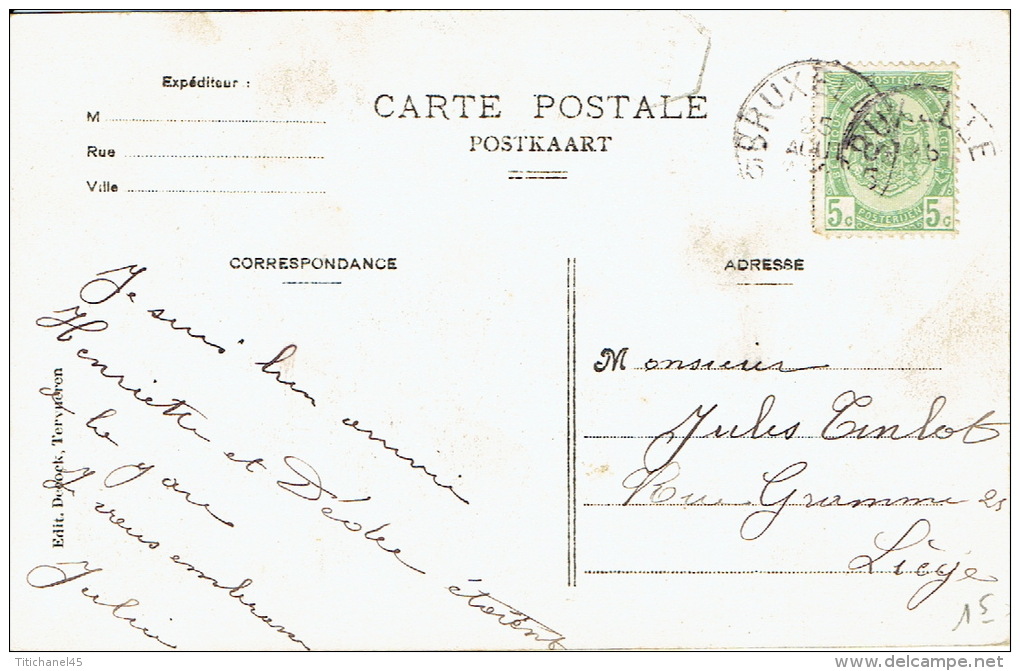 Expéditeur :
M
Rue
Ville
CARTE POSTALE
POSTKAART
POSTES
5c POSTERIJEN 5c
CORRESPONDANCE
ADRESSE
Je suis bien arrivée
Henriette et Dédée étaient
à la gare
Je vous embrasse
Julia
Edit. Decock, Tervueren
Monsieur
Jules Tinlot
Rue Gramme 25
Liège
15
Titichanel45
delcampe.net